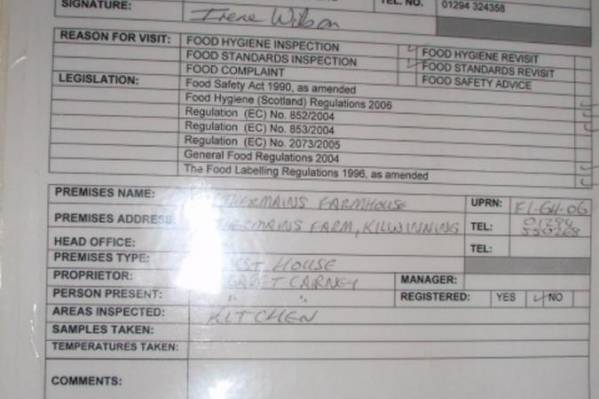 SIGNATURE: Irene Wilson TEL. NO. 01294 324358
REASON FOR VISIT: FOOD HYGIENE INSPECTION ✓ FOOD HYGIENE REVISIT
FOOD STANDARDS INSPECTION ✓ FOOD STANDARDS REVISIT
FOOD COMPLAINT FOOD SAFETY ADVICE
LEGISLATION: Food Safety Act 1990, as amended
Food Hygiene (Scotland) Regulations 2006
Regulation (EC) No. 852/2004
Regulation (EC) No. 853/2004
Regulation (EC) No. 2073/2005
General Food Regulations 2004
The Food Labelling Regulations 1996, as amended
PREMISES NAME: THERMAINS FARMHOUSE UPRN: F1-GH-06
PREMISES ADDRESS: HERMAINS FARM, KILWINNING TEL: 01294
HEAD OFFICE: TEL:
PREMISES TYPE: HOUSE
PROPRIETOR: CAIRNEY MANAGER:
PERSON PRESENT: " " REGISTERED: YES ✓ NO
AREAS INSPECTED: KITCHEN
SAMPLES TAKEN:
TEMPERATURES TAKEN:
COMMENTS: